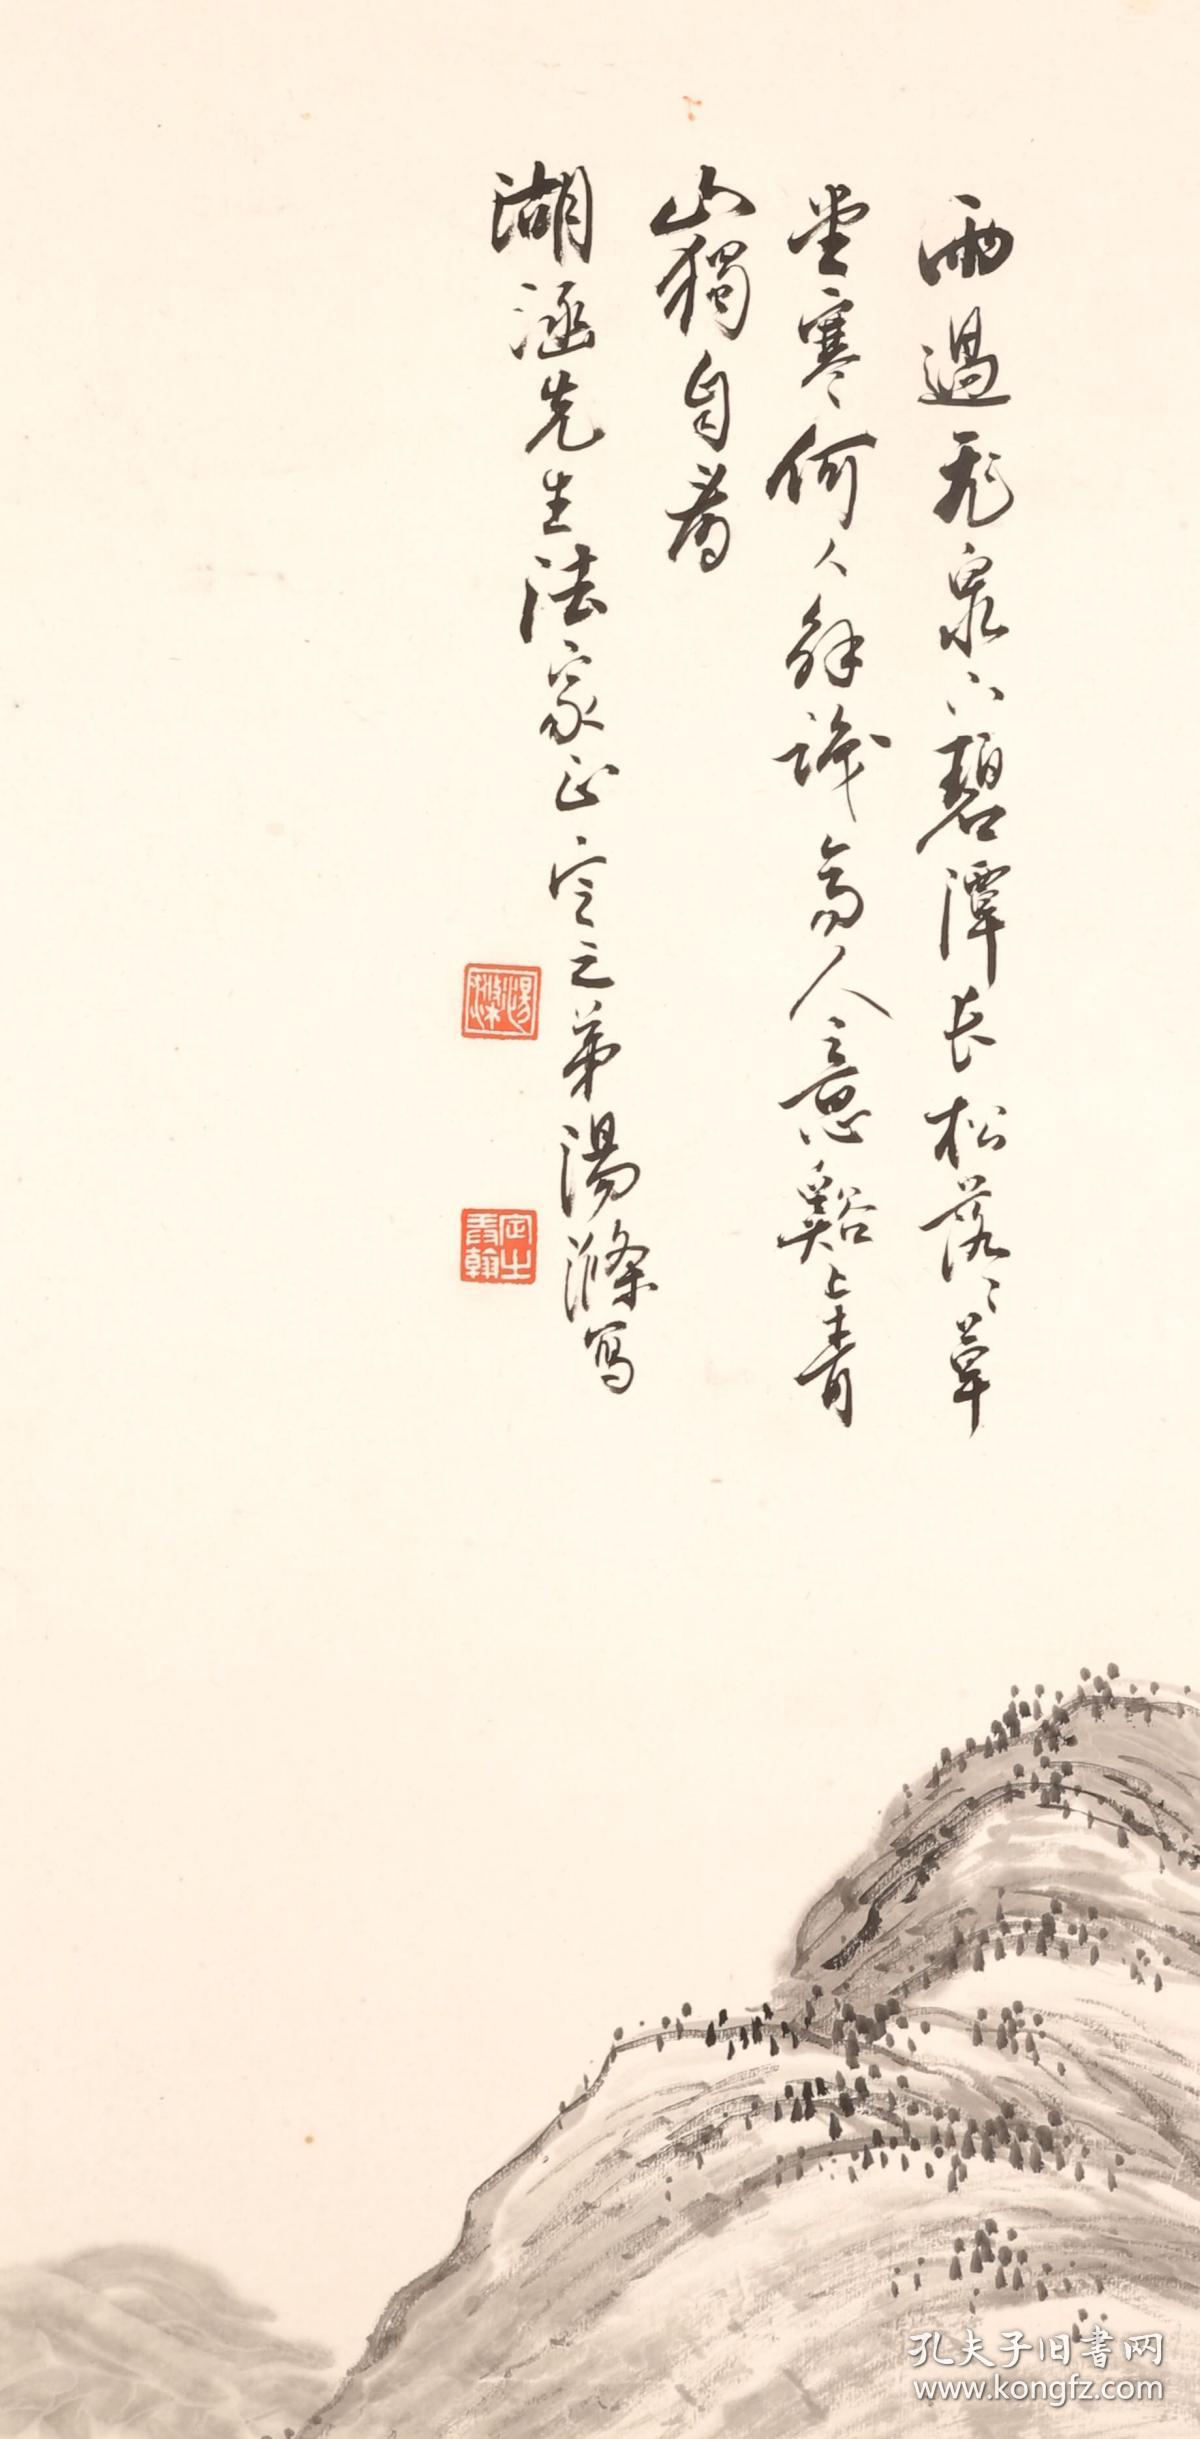 雨過飛泉下碧潭長松落〻草
堂寒何人解識高人意谿上青
山獨自看
湖涵先生法家正定之弟湯滌寫
湯滌
定之
翰
孔夫子旧書网
www.kongfz.com